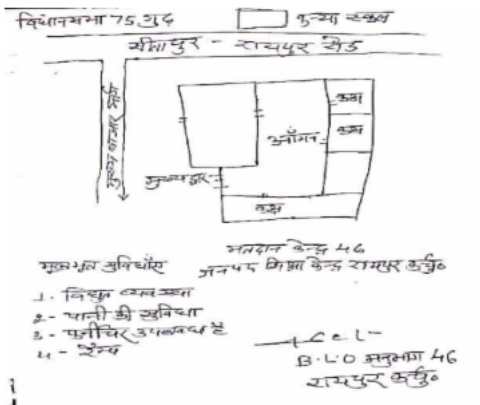 विधानसभा 75 गुढ़
कन्या स्कूल
सीतापुर - रायपुर रोड
मुख्य बाजार मार्ग
कक्ष
कक्ष
आँगन
मुख्यद्वार
कक्ष
मतदान केन्द्र 46
जनपद शिक्षा केन्द्र रायपुर कर्चु०
मूलभूत सुविधाएं
1. विद्युत व्यवस्था
2 - पानी की सुविधा
3 - फर्नीचर उपलब्ध है
4 - रैम्प
B.L.O अनुभाग 46
रायपुर कर्चु०